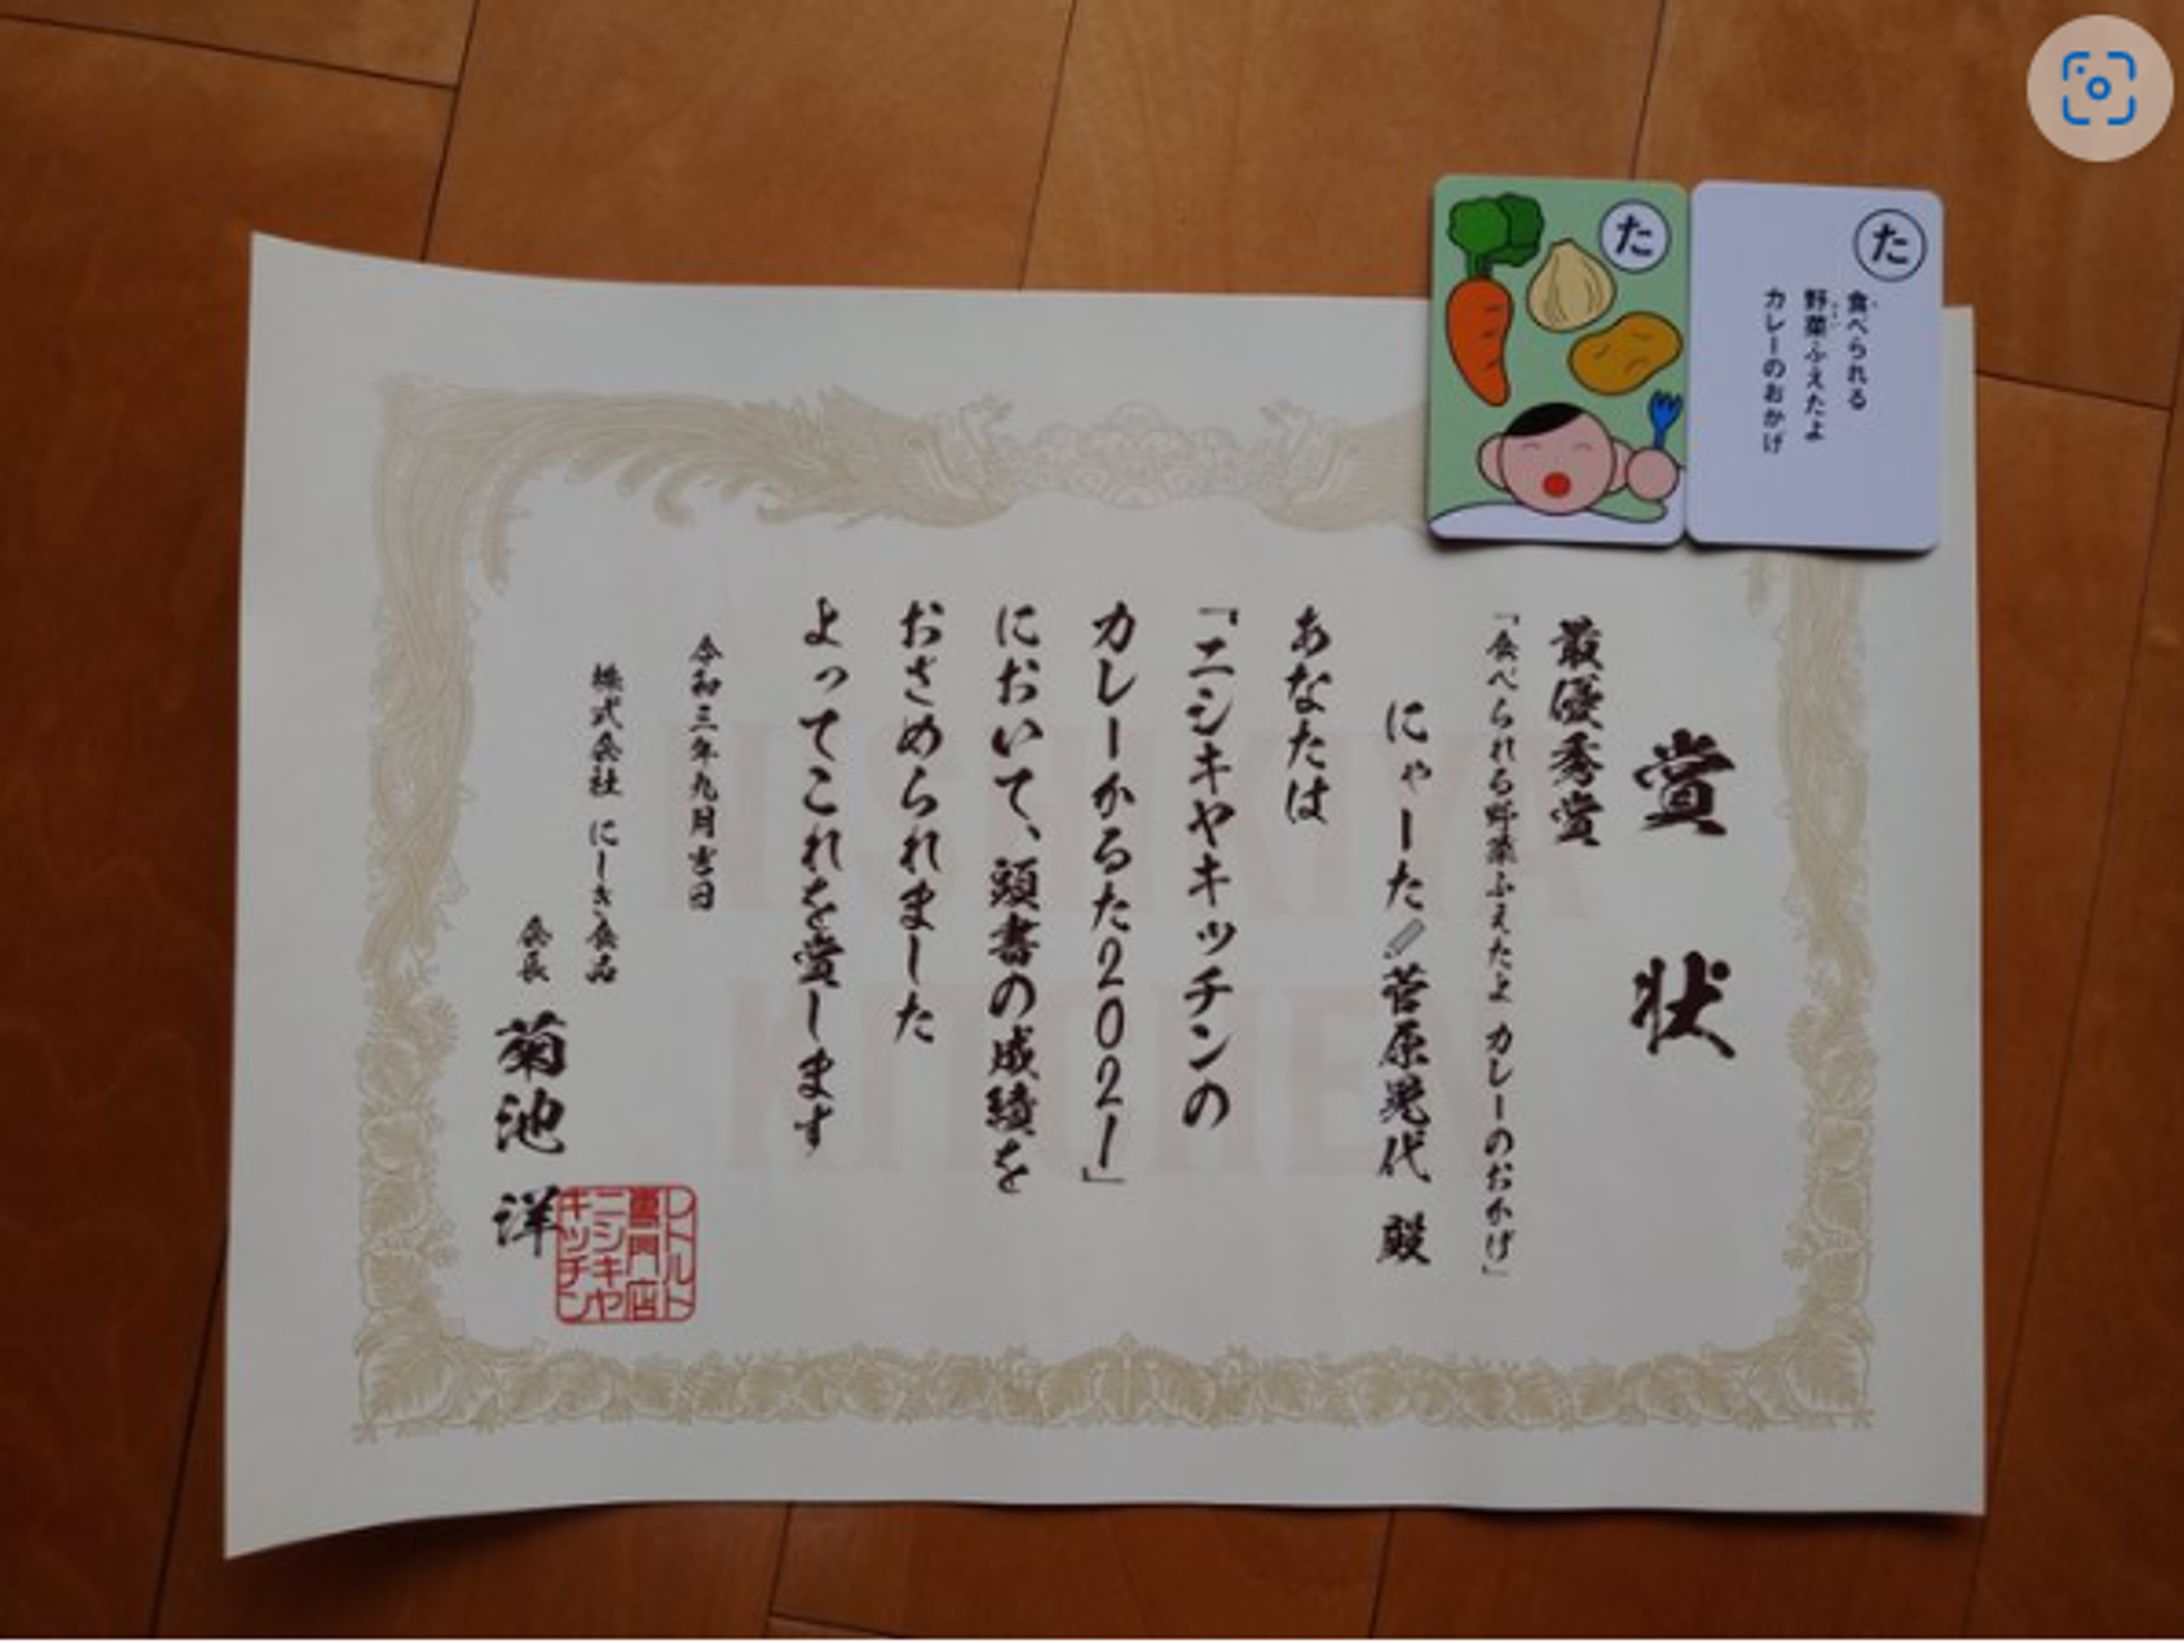 た
た
食べられる
野菜ふえたよ
カレーのおかげ
賞状
最優秀賞
「食べられる野菜ふえたよ カレーのおかげ」
にゃーた 菅原晃代 殿
あなたは
「ニシキヤキッチンの
カレーかるた2021」
において、頭書の成績を
おさめられました
よってこれを賞します
令和三年九月吉日
株式会社 にしき食品
会長 菊池 洋
レトルト
専門店
ニシキヤ
キッチン
NISHIKIYA
KITCHEN